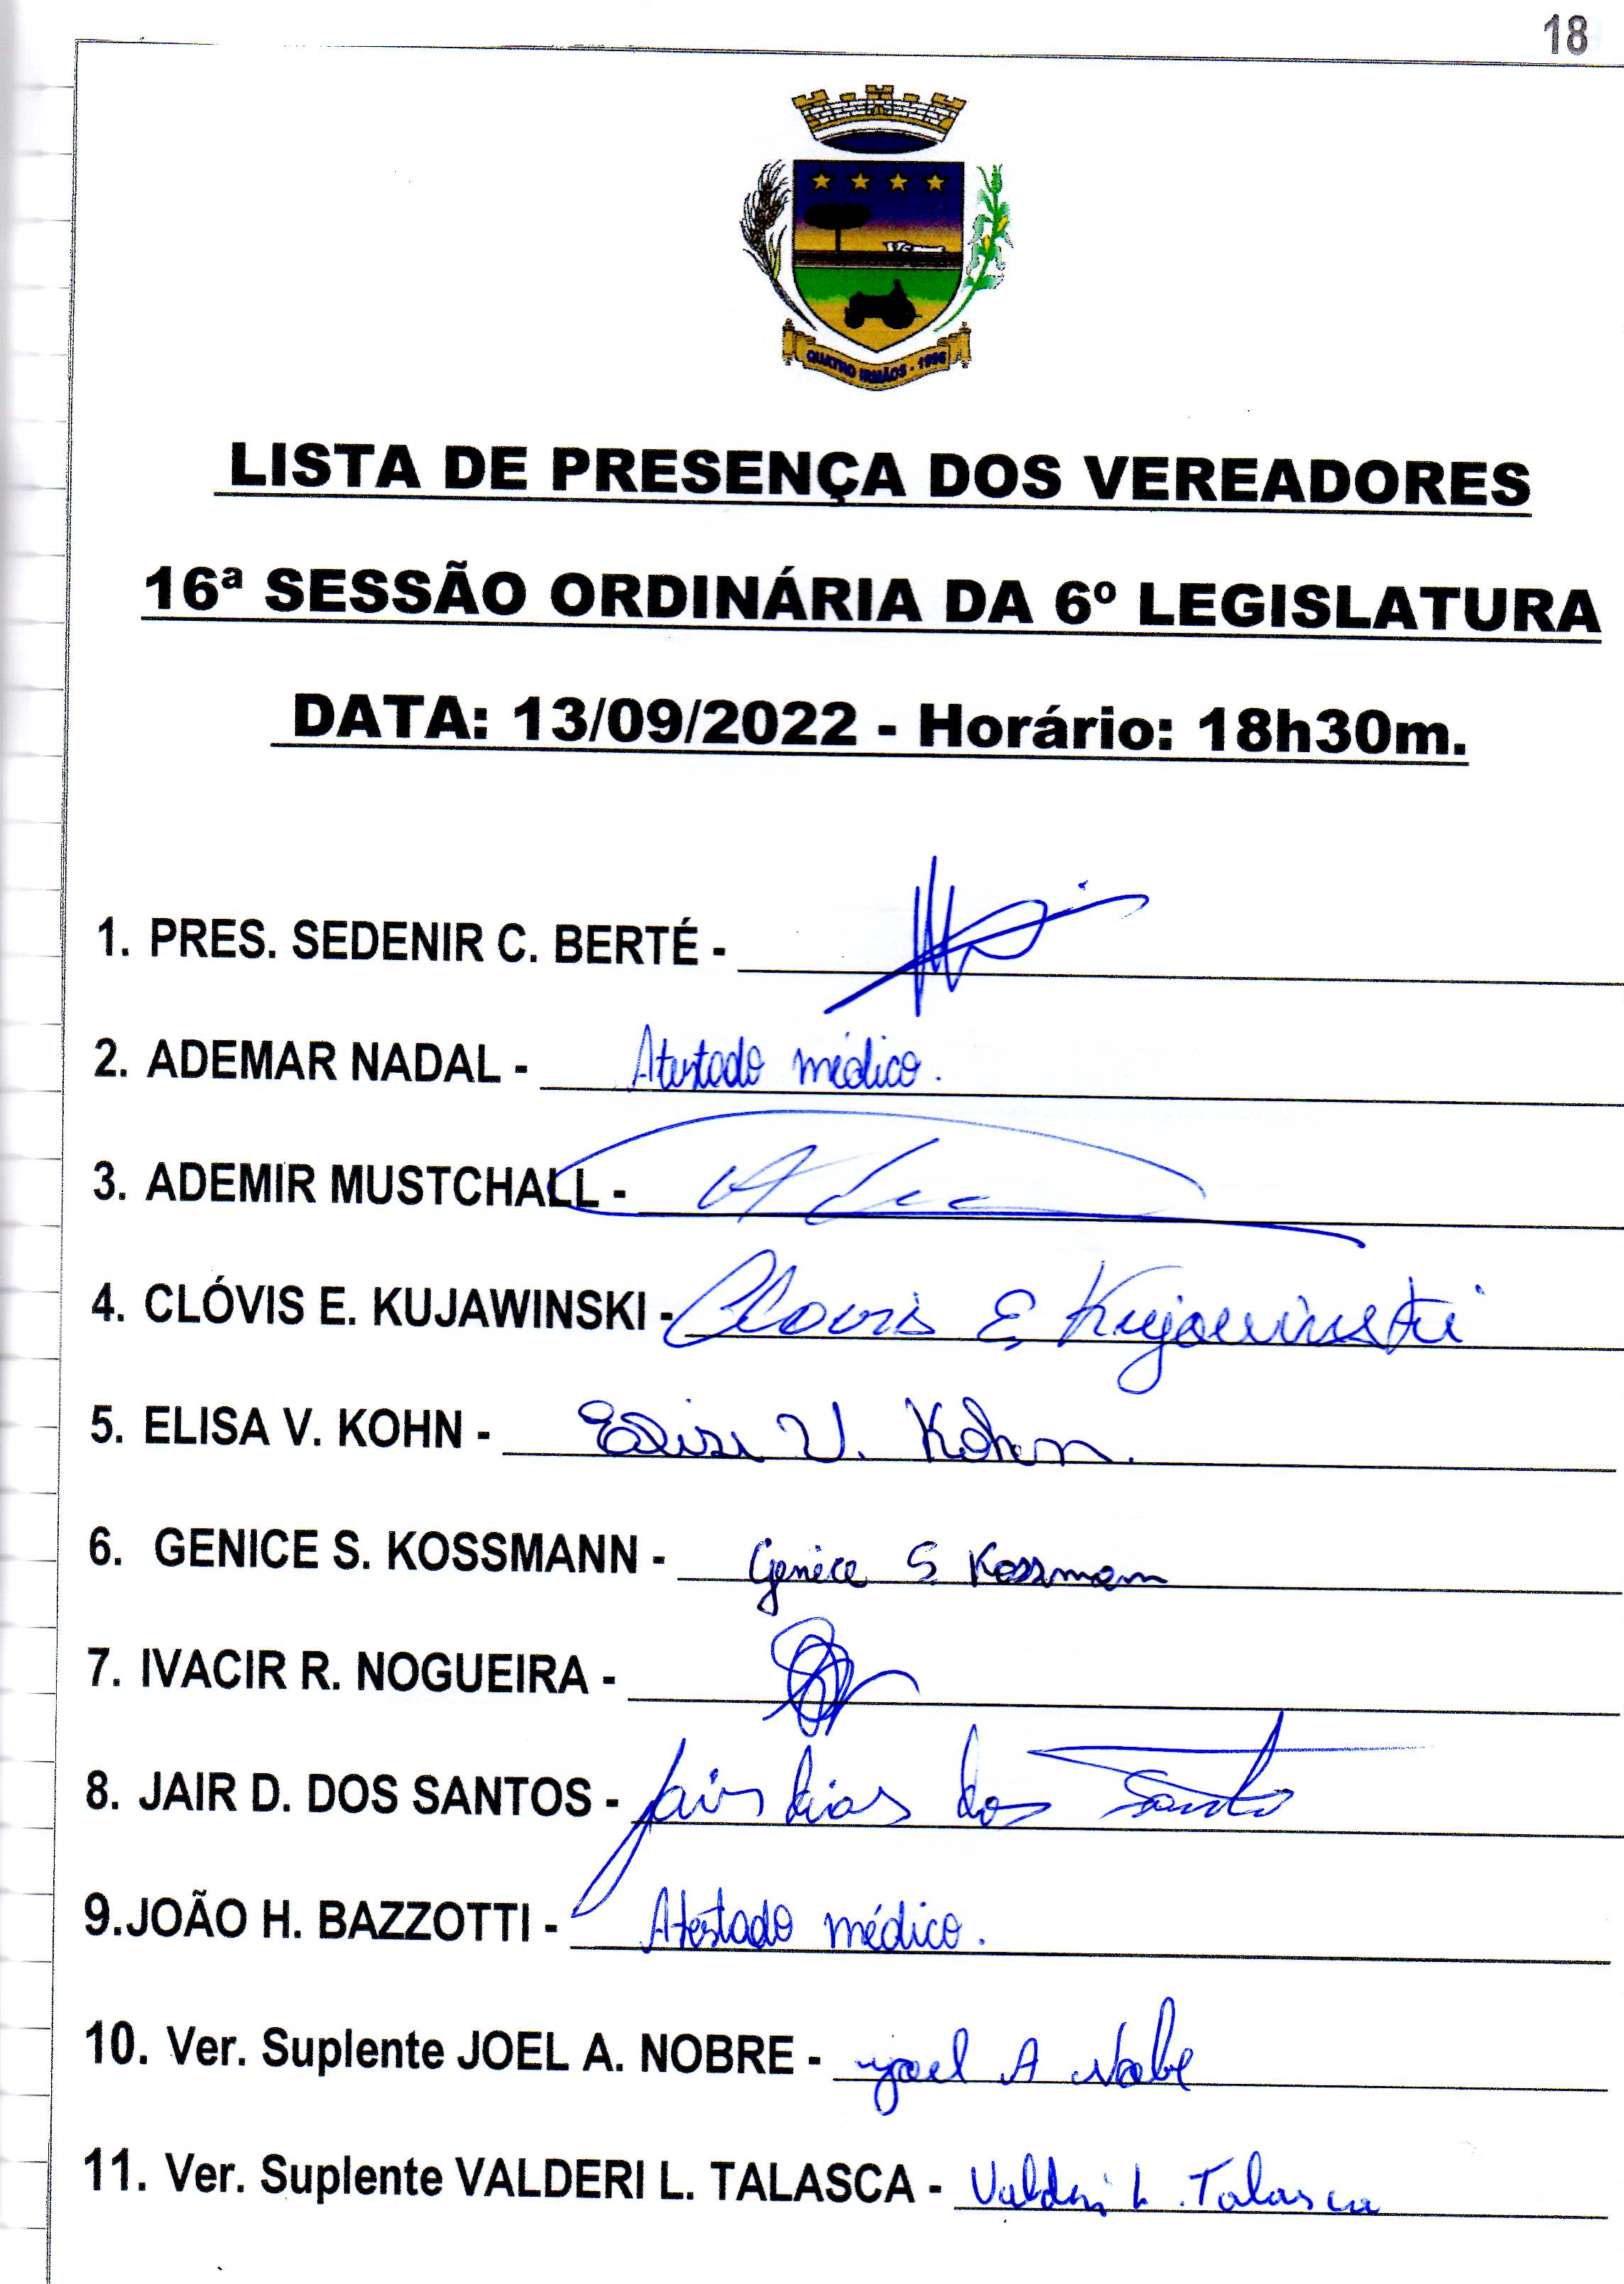 18
QUATRO IRMÃOS - 1996
LISTA DE PRESENÇA DOS VEREADORES
16ª SESSÃO ORDINÁRIA DA 6º LEGISLATURA
DATA: 13/09/2022 - Horário: 18h30m.
1. PRES. SEDENIR C. BERTÉ -
2. ADEMAR NADAL - Atestado médico.
3. ADEMIR MUSTCHALL -
4. CLÓVIS E. KUJAWINSKI - Clovis E Kujawinski
5. ELISA V. KOHN - Elisa V. Kohn.
6. GENICE S. KOSSMANN - Genice S. Kossmann
7. IVACIR R. NOGUEIRA -
8. JAIR D. DOS SANTOS - Jair dias dos Santos
9.JOÃO H. BAZZOTTI - Atestado médico.
10. Ver. Suplente JOEL A. NOBRE - Joel A Nobre
11. Ver. Suplente VALDERI L. TALASCA - Valderi L. Talasca